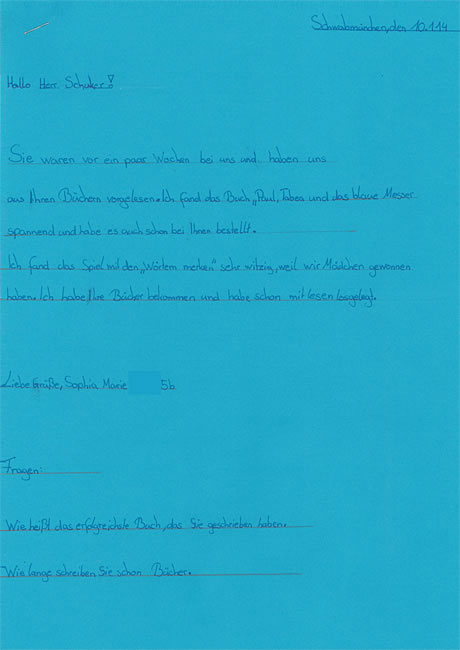 Schwabmünchen, den 10.1.14
Hallo Herr Schuker!
Sie waren vor ein paar Wochen bei uns und haben uns
aus Ihren Büchern vorgelesen. Ich fand das Buch „Paul, und das blaue Messer
spannend und habe es auch schon bei Ihnen bestellt.
Ich fand das Spiel mit den „Wörtern merken" sehr witzig, weil wir Mädchen gewonnen
haben. Ich habe Ihre Bücher bekommen und habe schon mit lesen losgelegt.
Liebe Grüße, Sophia Marie 5b
Fragen:
Wie heißt das erfolgreichste Buch, das Sie geschrieben haben.
Wie lange schreiben Sie schon Bücher.